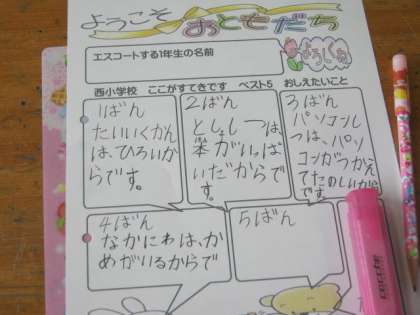 ようこそ
おともだち
エスコートする1年生の名前
よろしくね
西小学校 ここがすてきです ベスト5 おしえたいこと
1ばん
たいいくかん
は、ひろいか
らです。
2ばん
としょしつは、
本がいっぱ
いだからで
す。
3ばん
パソコンし
つは、パソ
コンがつかえ
てたのしいから
です。
4ばん
なかにわは、か
めがいるからで
5ばん